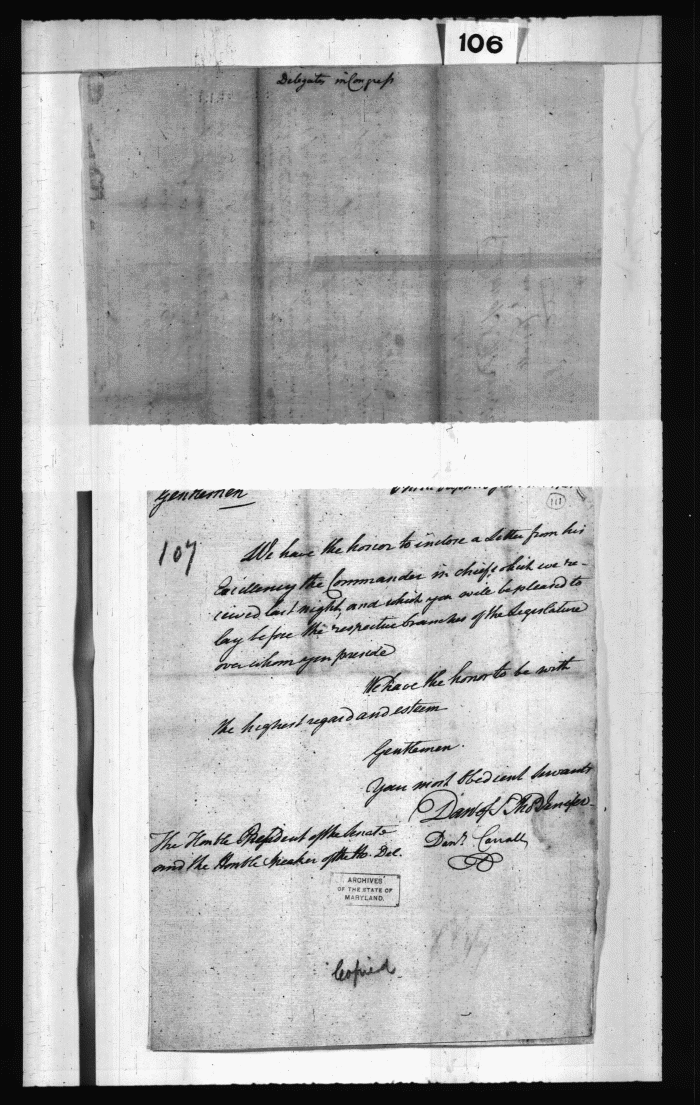 106
Delegates in Congress
Gentlemen
111
107
We have the honor to inclose a Letter from his
Excellency the Commander in chief, which we re-
ceived last night, and which you will be pleased to
lay before the respective branches of the Legislature
over whom you preside
We have the honor to be with
the highest regard and esteem
Gentlemen.
Your most Obedient Servants
Dan of S Thos Jenifer
Danl. Carroll
The Honble President of the Senate
and the Honble Speaker of the Ho. Del.
ARCHIVES
OF THE STATE OF
MARYLAND.
Copied